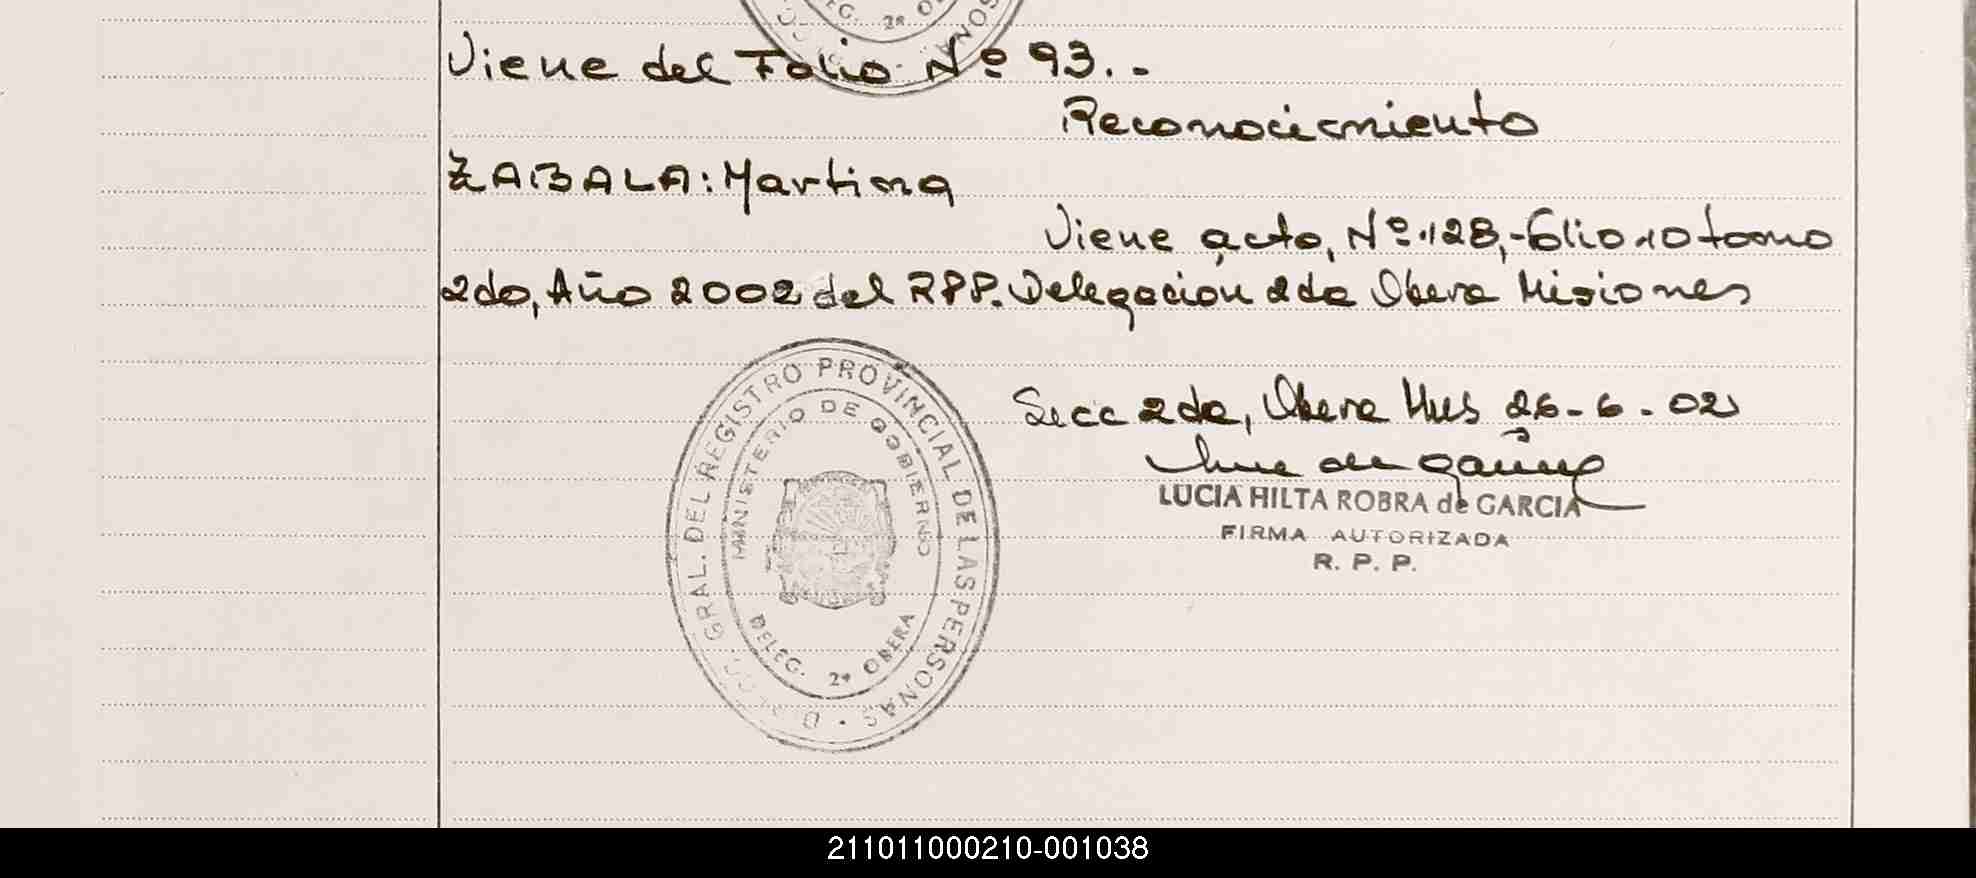 Viene del Folio Nº 93.-
Reconocimiento
ZABALA: Martina
Viene acto, Nº 128,- folio 10 tomo
2do, Año 2002 del RPP. Delegación 2da Obera Misiones
Secc 2da, Obera Mnes 26-6-02
LUCIA HILTA ROBRA de GARCIA
FIRMA AUTORIZADA
R. P. P.
GRAL. DEL REGISTRO PROVINCIAL DE LAS PERSONAS
MINISTERIO DE GOBIERNO
DELEG. 2ª OBERA
211011000210-001038